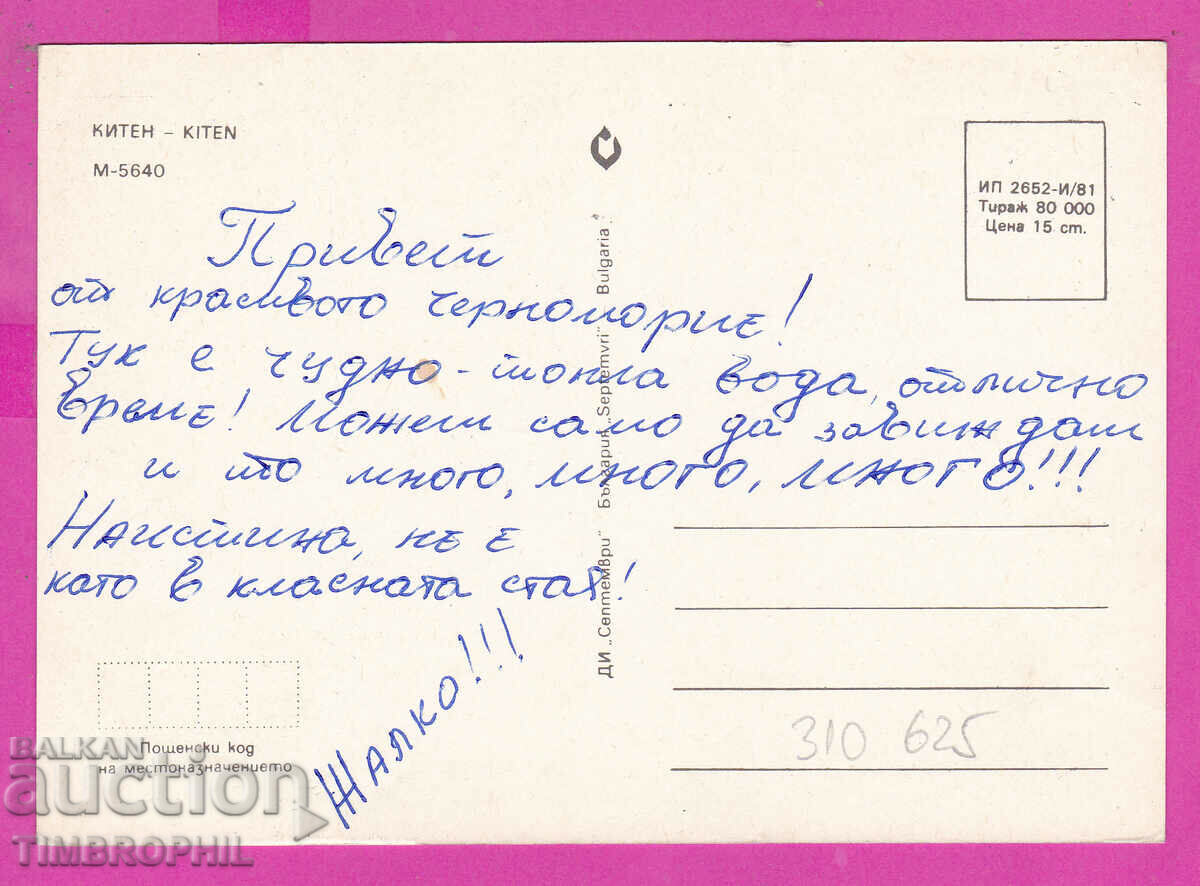 КИТЕН – KITEN
М-5640
ИП 2652-И/81
Тираж 80 000
Цена 15 ст.
Привет
от красивото черноморие!
Тук е чудно - топла вода, отлично
време! Можеш само да завиждаш
и то много, много, много!!!
Наистина, не е
като в класната стая!
Жалко!!!
ДИ „Септември" България „Septemvri" Bulgaria
Пощенски код
на местоназначението
310 625
BALKAN
auction
TIMBROPHIL